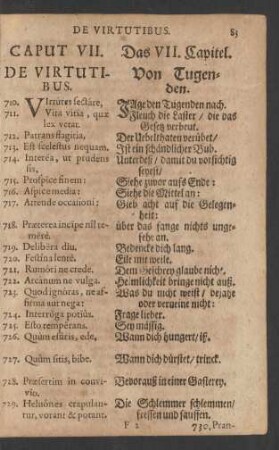 DE VIRTUTIBUS. 83
CAPUT VII.
DE VIRTUTI-
BUS.
710. VIrtutes sectare,
711. Vita vitia, quæ
lex vetat.
712. Patrans flagitia,
713. Est scelestus nequam.
714. Intereà, ut prudens
sis,
715. Prospice finem:
716. Aspice media:
717. Attende occasioni:
718. Præterea incipe nil te-
merè.
719. Delibera diu.
720. Festina lentè.
721. Rumori ne crede.
722. Arcanum ne vulga.
723. Quod ignoras, ne af-
firma aut nega:
724. Interroga potiùs.
725. Esto temperans.
726. Quùm esuris, ede,
727. Quùm sitis, bibe.
728. Præsertim in convi-
vio.
729. Helluones crapulan-
tur, vorant & potant.
Das VII. Capitel.
Von Tugen-
den.
JAge den Tugenden nach.
Fleuch die Laster / die das
Gesetz verbeut.
Der Uebelthaten verübet/
Ist ein schändlicher Bub.
Unterdeß / damit du vorsichtig
seyest/
Siehe zuvor aufs Ende:
Siehe die Mittel an:
Gieb acht auf die Gelegen-
heit:
über das fange nichts unge-
sehr an.
Bedencke dich lang.
Eile mit weile.
Dem Geschrey glaube nicht.
Heimlichkeit bringe nicht auß.
Was du nicht weist / bejahe
oder verneine nicht:
Frage lieber.
Sey mässig.
Wann dich hungert/ iß.
Wann dich dürstet/ trinck.
Bevor auß in einer Gasterey.
Die Schlemmer schlemmen/
fressen und sauffen.
F 2 730. Præn-